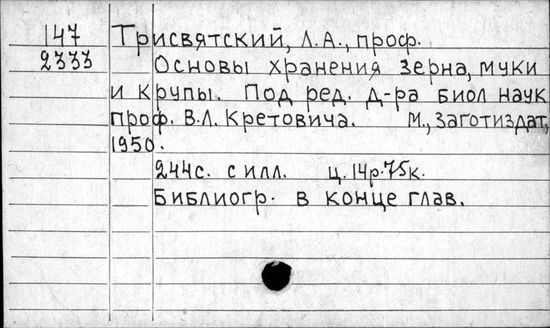 147 Трисвятский, Л.А., проф.
2333 Основы хранения зерна, муки
и крупы. Под ред. д-ра биол наук
проф. В.Л. Кретовича. М., Заготиздат,
1950.
244с. с илл. ц. 14р.75к.
Библиогр. в конце глав.